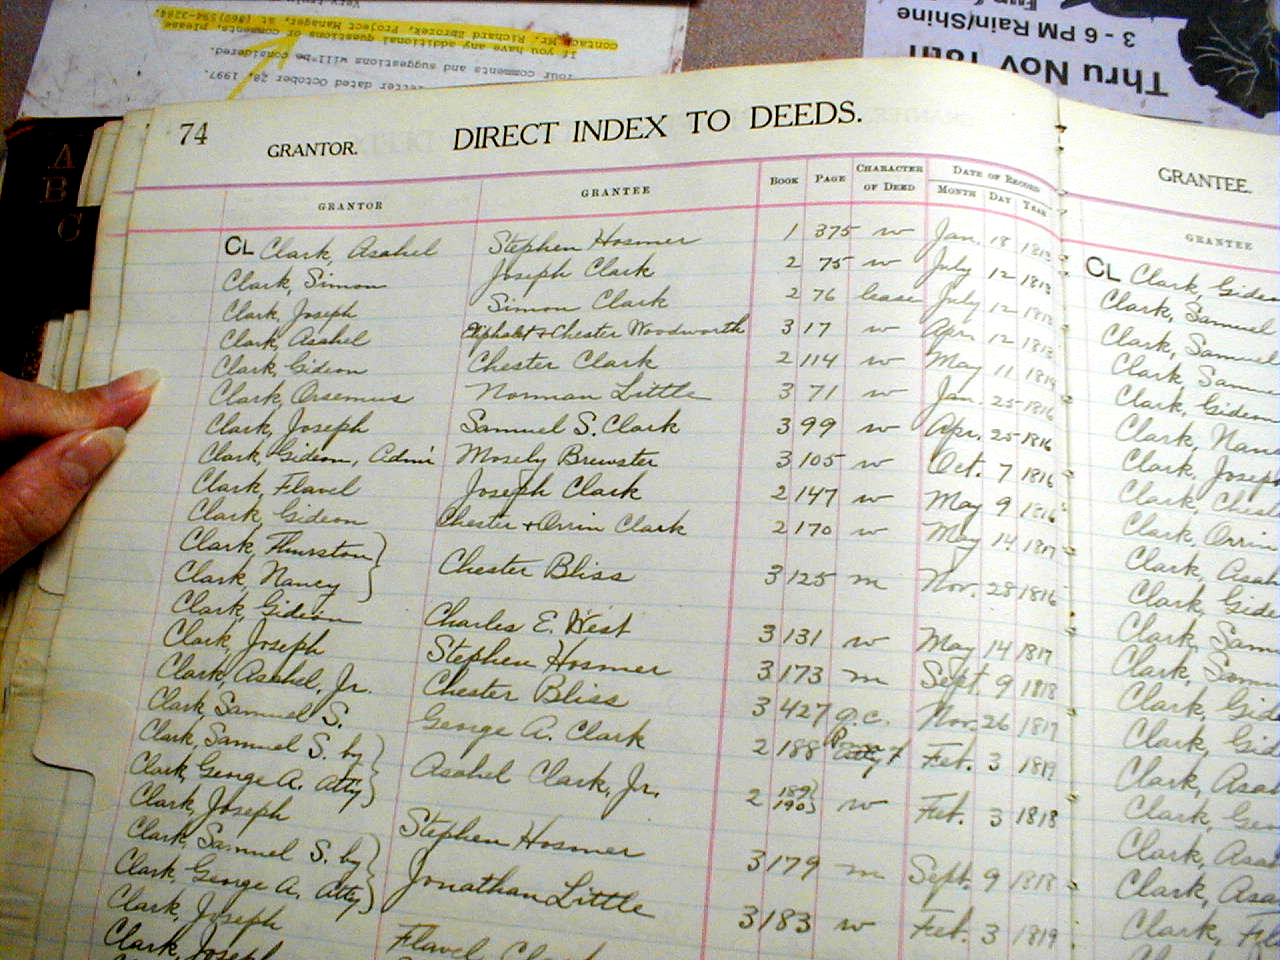 Very
contact Mr. Richard Ibrorek Project Manager, at (860)594-3284.
If you have any additional questions or comments, please
Your comments and suggestions will be considered.
letter dated October 28, 1997.
Thru Nov 18th
3 - 6 PM Rain/Shine
A
B
C
74
GRANTOR. DIRECT INDEX TO DEEDS.
GRANTOR GRANTEE BOOK PAGE CHARACTER OF DEED DATE OF RECORD
MONTH DAY YEAR
CL Clark, Asahel Stephen Hosmer 1 375 w Jan. 18 1813
Clark, Simon Joseph Clark 2 75 w July 12 1813
Clark, Joseph Simon Clark 2 76 lease July 12 1813
Clark, Asahel Eliphalet & Chester Woodworth 3 17 w Apr. 12 1813
Clark, Gideon Chester Clark 2 114 w May 11 1814
Clark, Orsemus Norman Little 3 71 w Jan. 25 1816
Clark, Joseph Samuel S. Clark 3 99 w Apr. 25 1816
Clark, Gideon, Admr Mosely Brewster 3 105 w Oct. 7 1816
Clark, Flavel Joseph Clark 2 147 w May 9 1816
Clark, Gideon Chester + Orrin Clark 2 170 w May 14 1817
Clark, Thurston}
Clark, Nancy } Chester Bliss 3 125 m Nov. 28 1816
Clark, Gideon Charles E. West 3 131 w May 14 1817
Clark, Joseph Stephen Hosmer 3 173 m Sept. 9 1818
Clark, Asahel, Jr. Chester Bliss 3 427 q.c. Nov. 26 1817
Clark, Samuel S. George A. Clark 2 188 Feb. 3 1819
Clark, Samuel S. by}
Clark, George A. Atty} Asahel Clark, Jr. 2 189} 190} w Feb. 3 1818
Clark, Joseph Stephen Hosmer 3 179 m Sept. 9 1818
Clark, Samuel S. by}
Clark, George A. Atty} Jonathan Little 3 183 w Feb. 3 1819
Clark, Joseph Flavel Clark
Clark, Joseph
GRANTEE.
GRANTEE
CL Clark, Gideon
Clark, Samuel
Clark, Samuel
Clark, Sam
Clark, Gideon
Clark, Nan
Clark, Joseph
Clark, Chest
Clark, Orrin
Clark, Asah
Clark, Gide
Clark, Sam
Clark, Sam
Clark, Gid
Clark, Gid
Clark, Asah
Clark, Geo
Clark, Asa
Clark, Asa
Clark, Fla